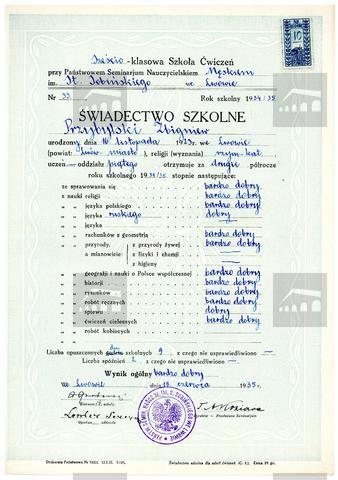 Sześcio-klasowa Szkoła Ćwiczeń
przy Państwowem Seminarjum Nauczycielskiem Męskiem
im. St. Sobińskiego we Lwowie
Nr 33 Rok szkolny 1934/35
10
ŚWIADECTWO SZKOLNE
Przybylski Zbigniew
urodzony dnia 16 listopada 1923 r. we Lwowie
(powiat: Lwów miasto), religji (wyznania) rzym-kat.
uczeń oddziału piątego otrzymuje za drugie półrocze
roku szkolnego 1934/35 stopnie następujące:
ze sprawowania się bardzo dobry
z nauki religji bardzo dobry
„ języka polskiego bardzo dobry
„ języka ruskiego dobry
„ języka —
„ rachunków z geometrją bardzo dobry
„ przyrody, z przyrody żywej bardzo dobry
a mianowicie z fizyki i chemji —
z higjeny —
„ geografji i nauki o Polsce współczesnej bardzo dobry
„ historji bardzo dobry
„ rysunków bardzo dobry
„ robót ręcznych bardzo dobry
„ śpiewu dobry
„ ćwiczeń cielesnych bardzo dobry
„ robót kobiecych —
Liczba opuszczonych dni szkolnych 9, z czego nie usprawiedliwiono —
Liczba spóźnień 2, z czego nie usprawiedliwiono —
Wynik ogólny bardzo dobry
we Lwowie dnia czerwca 1935 r.
Opiekun oddziału